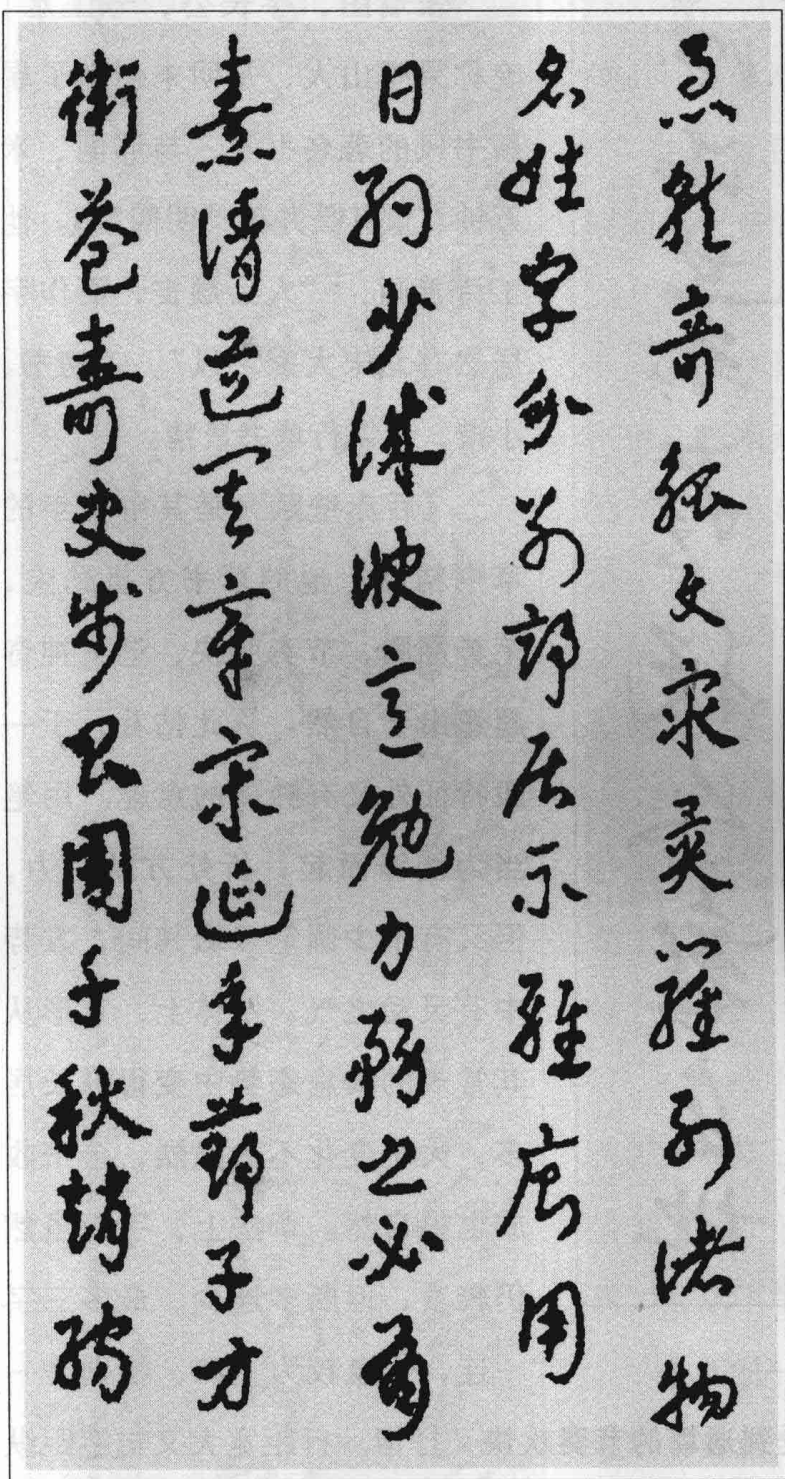 急就奇觚與眾異羅列諸物
名姓字分別部居不雜廁用
日約少誠快意勉力務之必有
憙請道其章宋延年鄭子方
衛益壽史步昌周千秋趙孺